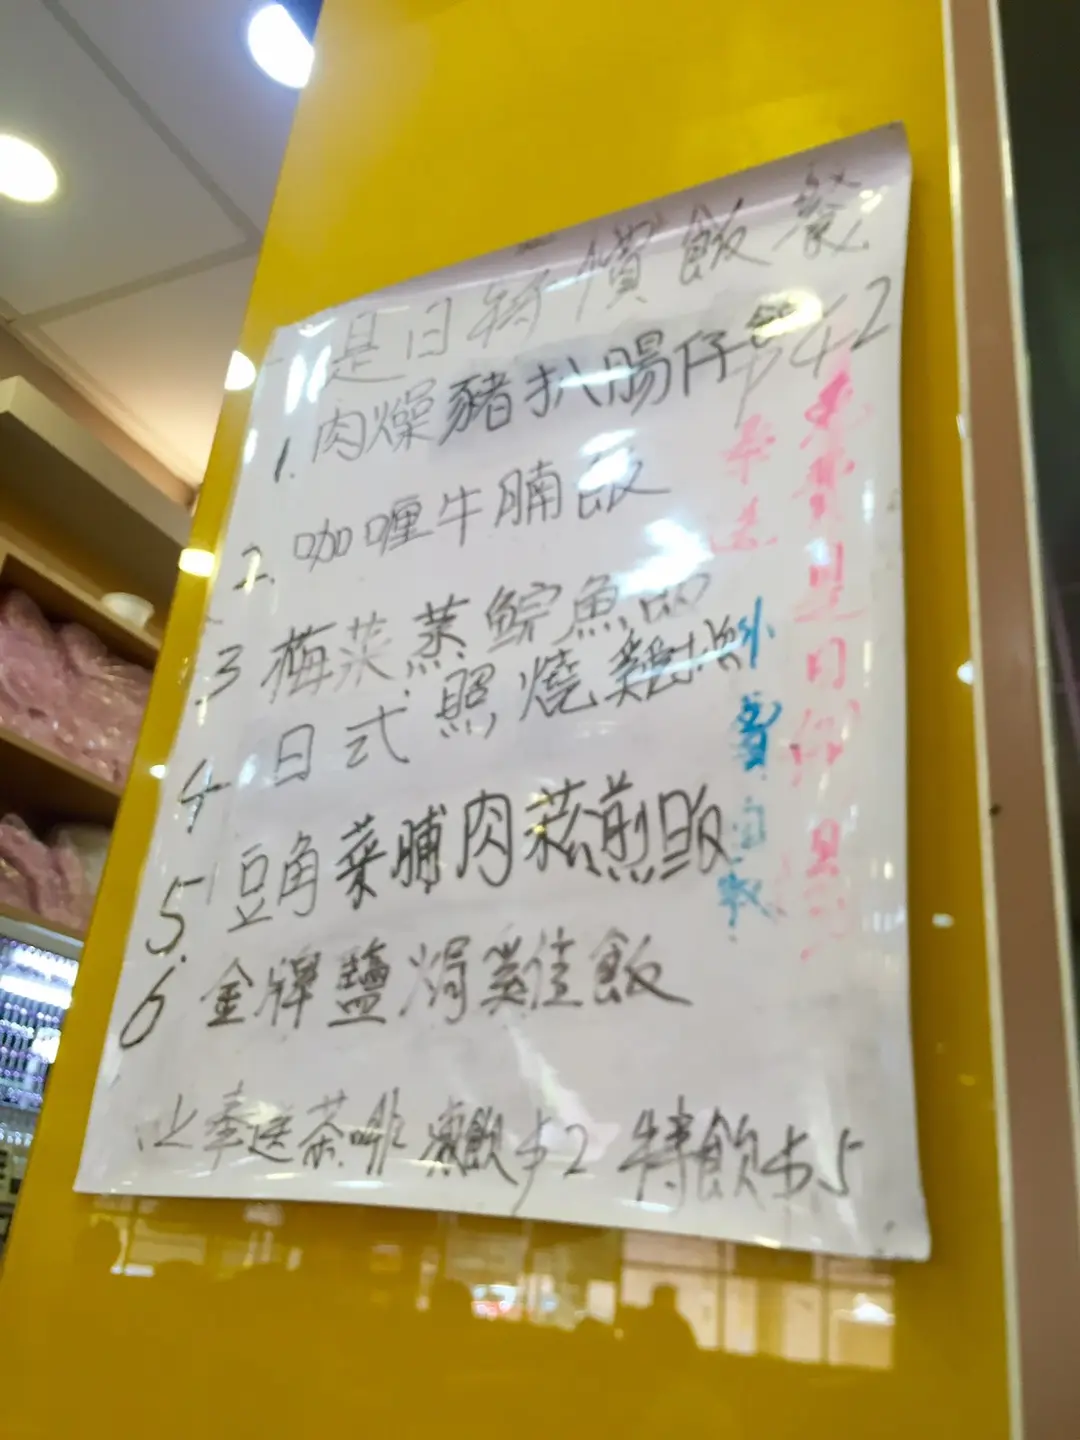 是日特價飯餐
1. 肉燥豬扒腸仔飯 $42
2. 咖喱牛腩飯
3 梅菜蒸鯇魚
4 日式照燒雞
5. 豆角菜脯肉菘煎
6 金牌鹽焗雞飯
以上奉送茶啡 凍飲$2 特飲$5
奉送
免費是日例湯